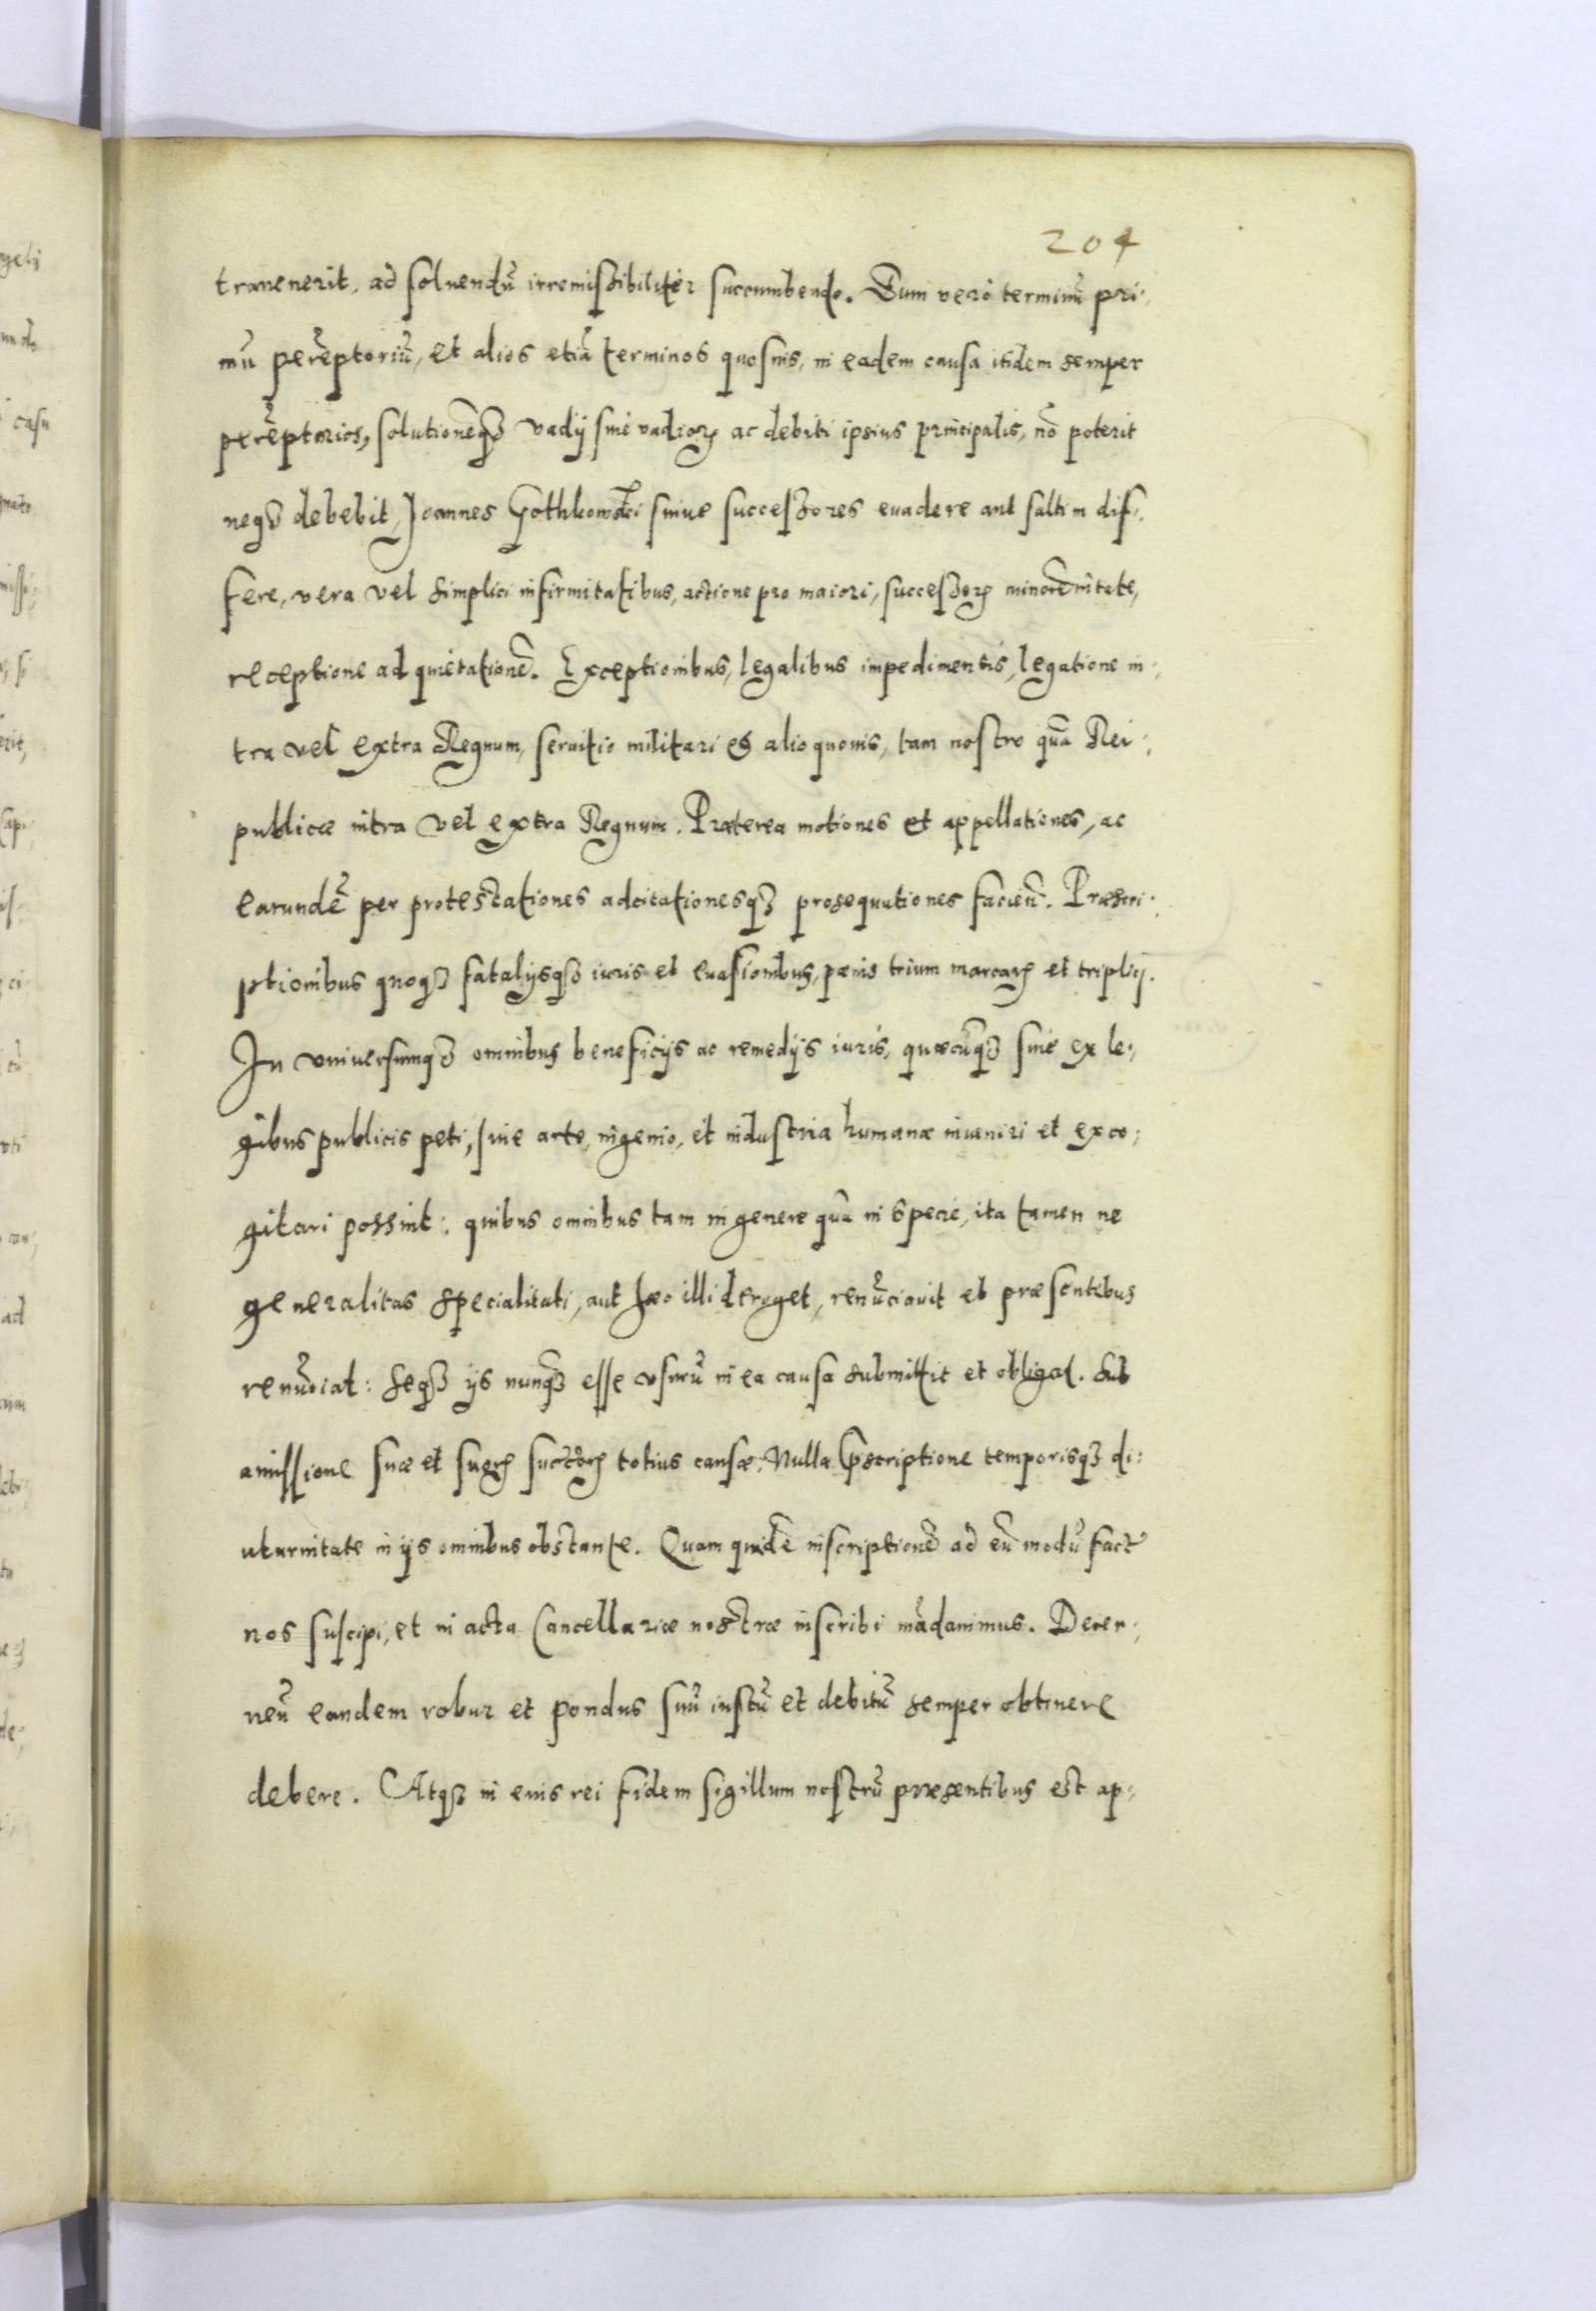 204
trauenerit, ad soluendū irremissibiliter succumbendo. Eum vero terminū pri-
mū perēptoriū, et alios etiā terminos quosuis, in eadem causa itidem semper
perēptorios, solutionēqꝫ vadij siue vadioꝝ ac debiti ipsius principalis, nō poterit
neqꝫ debebit Joannes Gothkowski suiue successores euadere aut saltim dif-
fere, vera vel simplici infirmitatibus, actione pro maiori, successoꝝ minorēnitate,
receptione ad quietationē. Exceptionibus, legalibus impedimentis, legatione in-
tra vel extra Regnum, seruitio militari et alio quouis, tam nostro quā Rei-
publicæ intra vel extra Regnum. Præterea motiones et appellationes, ac
earundē per protestationes adcitationesqꝫ prosequutiones facien̄. Præscri-
ptionibus quoqꝫ fatalijsqꝫ iuris et euasionibus, pœnis trium marcaꝝ et triplicj.
In vniuersumqꝫ omnibus beneficijs ac remedijs iuris, quæcūqꝫ siue ex le-
gibus publicis peti, siue arte, ingenio, et industria humanæ inueniri et exco-
gitari possint: quibus omnibus tam in genere quā in specie, ita tamen ne
generalitas specialitati, aut hæc illi deroget, renūciauit et præsentibus
renūciat: seqꝫ ijs nunqꝫ esse vsurū in ea causa submittit et obligat. sub
amissione suæ et suoꝝ succroꝝ totius causæ. Nulla p̄scriptione temporisqꝫ di-
uturnitate in ijs omnibus obstante. Quam quidē inscriptionē ad eū modū fact̄
nos suscipi, et in acta Cancellariæ nostræ inscribi mādauimus. Decer-
nen̄ eandem robur et pondus suū iustū et debitū semper obtinere
debere. Atqꝫ in euis rei fidem sigillum nostrū præsentibus est ap-